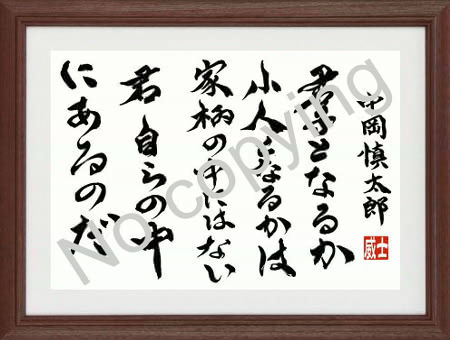 中岡慎太郎
威士
君子となるか
小人となるかは
家柄の中にはない
君自らの中
にあるのだ
No copying